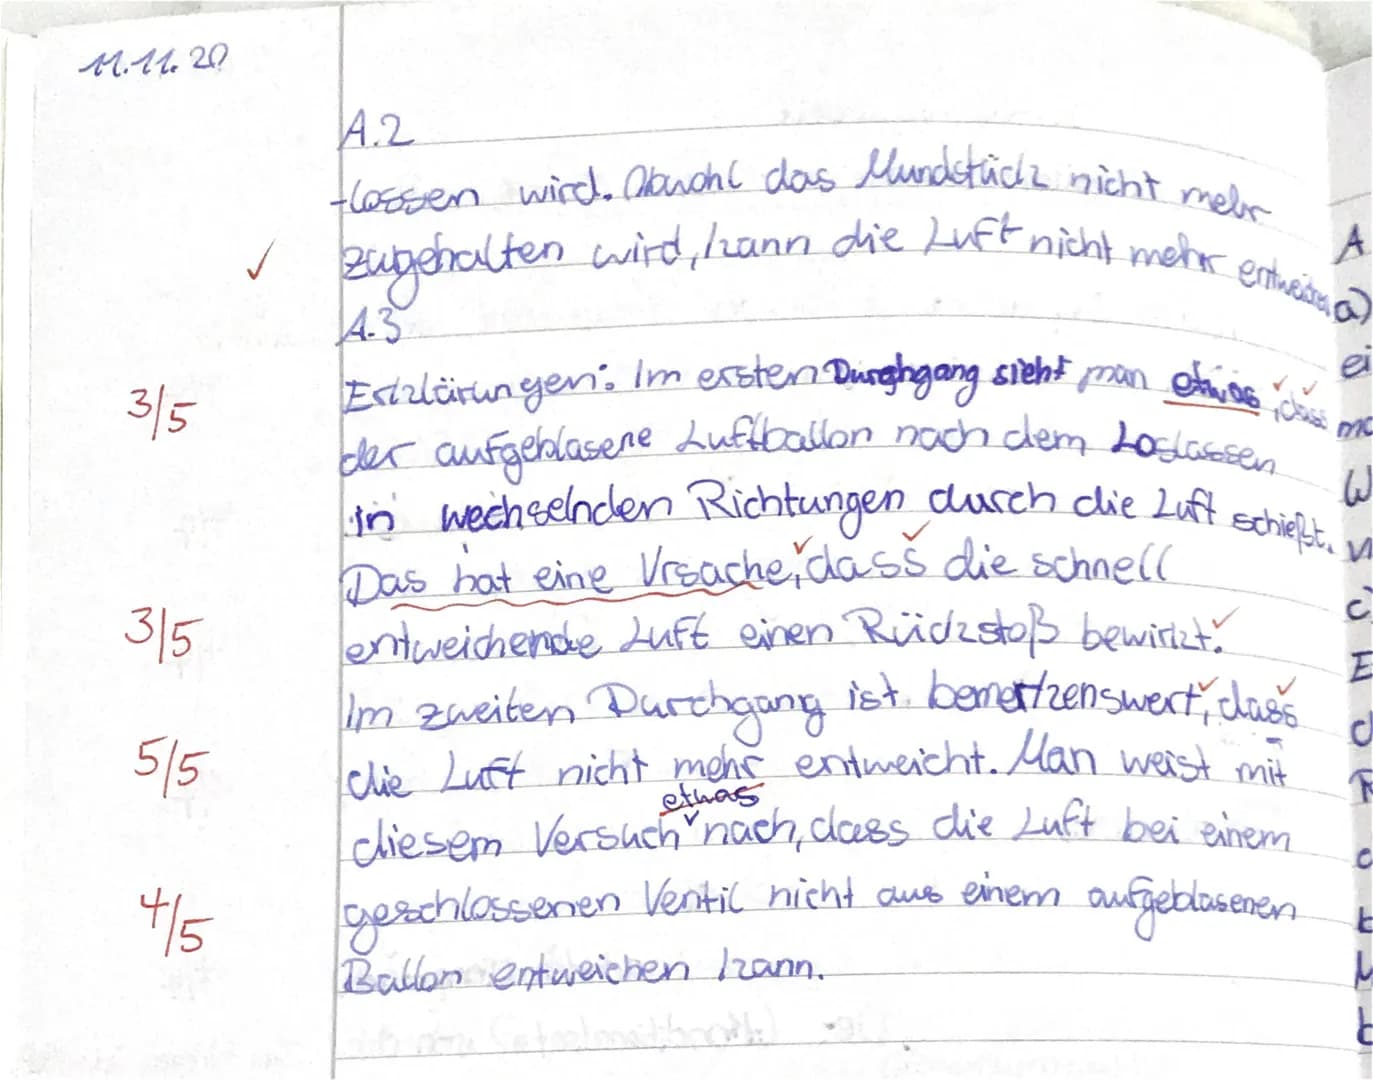 11.11.20
A.2
-lossen wird. Obwohl das Mundstück nicht mehr
zugehalten wird, kann die Luft nicht mehr entweichen
✓
A.3
Erklärungen: Im ersten Durchgang sieht man etwas, dass
3/5
der aufgeblasene Luftballon nach dem Loslassen
in wechselnden Richtungen durch die Luft schießt.
Das hat eine Ursache, dass die schnell
entweichende Luft einen Rückstoß bewirkt.
3/5
Im zweiten Durchgang ist bemerkenswert, dass
die Luft nicht mehr entweicht. Man weist mit
5/5
etwas
diesem Versuch nach, dass die Luft bei einem
geschlossenen Ventil nicht aus einem aufgeblasenen
4/5
Ballon entweichen kann.
A
a)
ei